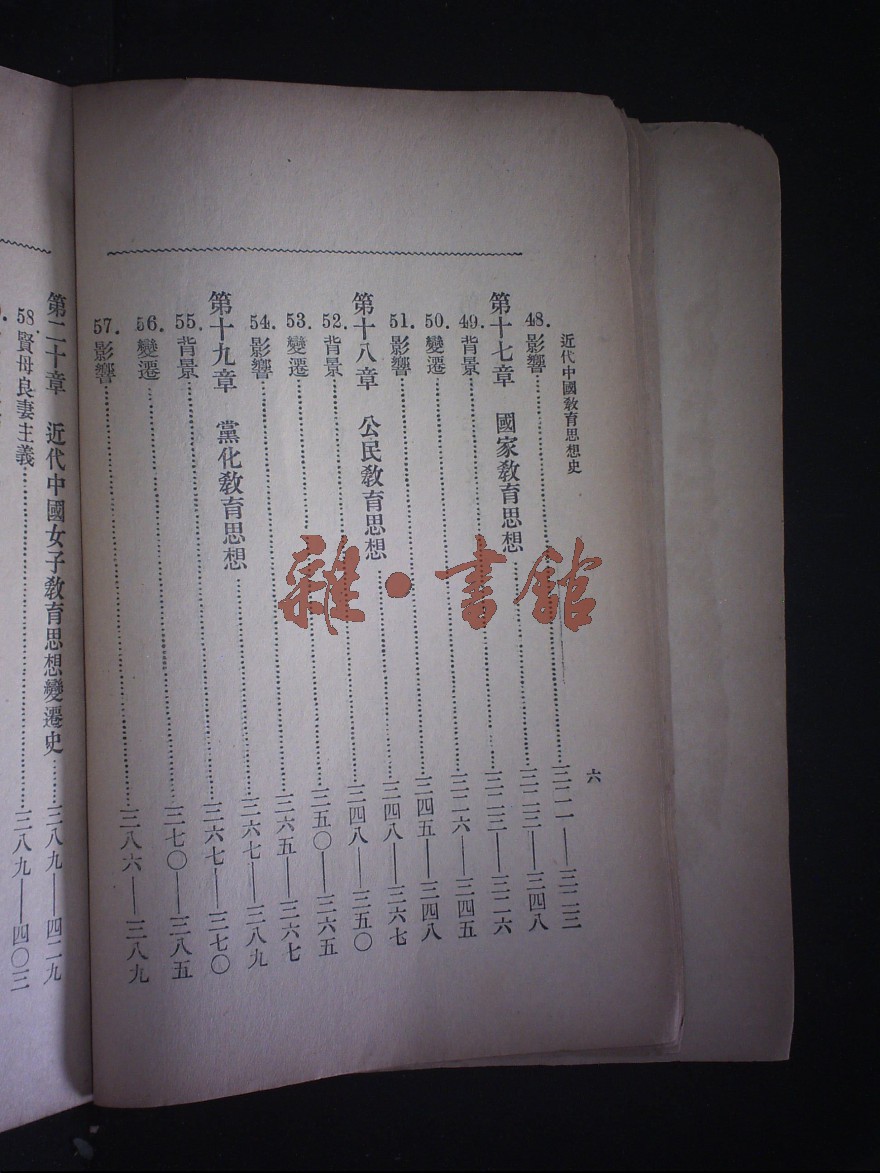 近代中國教育思想史 六
48. 影響……三二一——三二三
第十七章 國家教育思想……三二三——三四八
49. 背景……三二三——三二六
50. 變遷……三二六——三四五
51. 影響……三四五——三四八
第十八章 公民教育思想……三四八——三六七
52. 背景……三四八——三五〇
53. 變遷……三五〇——三六五
54. 影響……三六五——三六七
第十九章 黨化教育思想……三六七——三八九
55. 背景……三六七——三七〇
56. 變遷……三七〇——三八五
57. 影響……三八六——三八九
第二十章 近代中國女子教育思想變遷史……三八九——四二九
58. 賢母良妻主義……三八九——四〇三
雜·書館